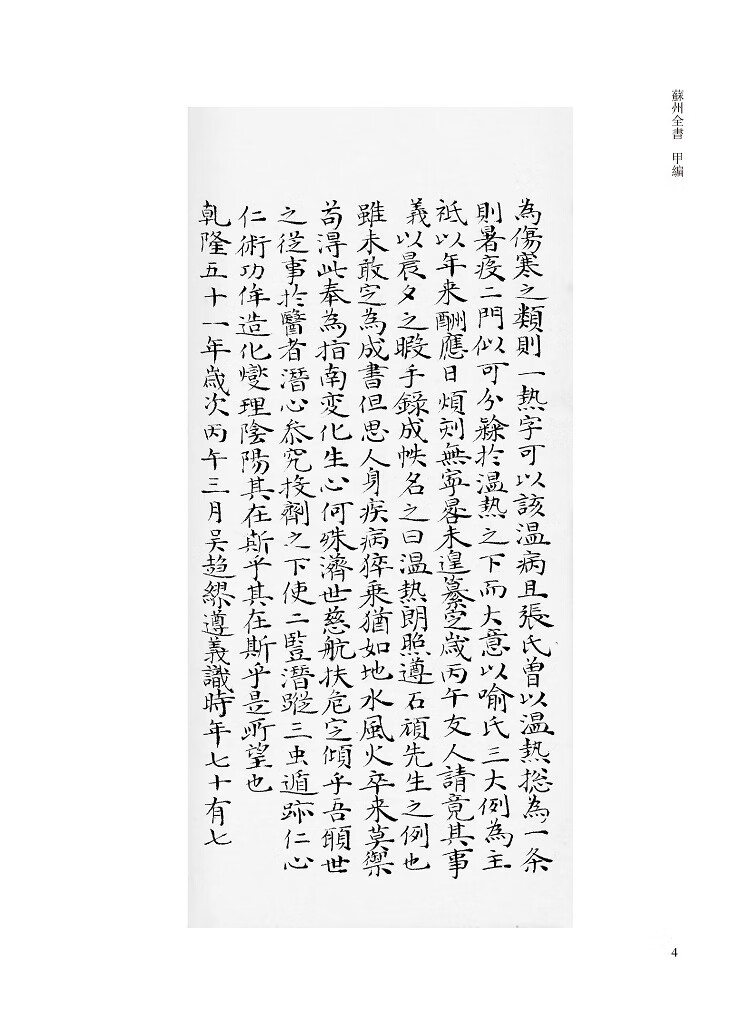 蘇州全書 甲編
為傷寒之類則一熱字可以該温病且張氏曾以温熱揔為一条
則暑疫二門似可分𨽻扵温熱之下而大意以喻氏三大例為主
祇以年来酬應日煩刻無寧晷未遑纂定歲丙午友人請竟其事
義以晨夕之暇手錄成帙名之曰温熱朗照遵石頑先生之例也
雖未敢定為成書但思人身疾病猝乗猶如地水風火卒来莫禦
苟淂此奉為指南変化生心何殊濟世慈航扶危定傾乎吾願世
之從事扵醫者潛心叅究投劑之下使二豎潛蹤三虫遁跡仁心
仁術功侔造化燮理陰陽其在斯乎其在斯乎是所望也
乾隆五十一年歲次丙午三月吳趋繆遵義識時年七十有七
4